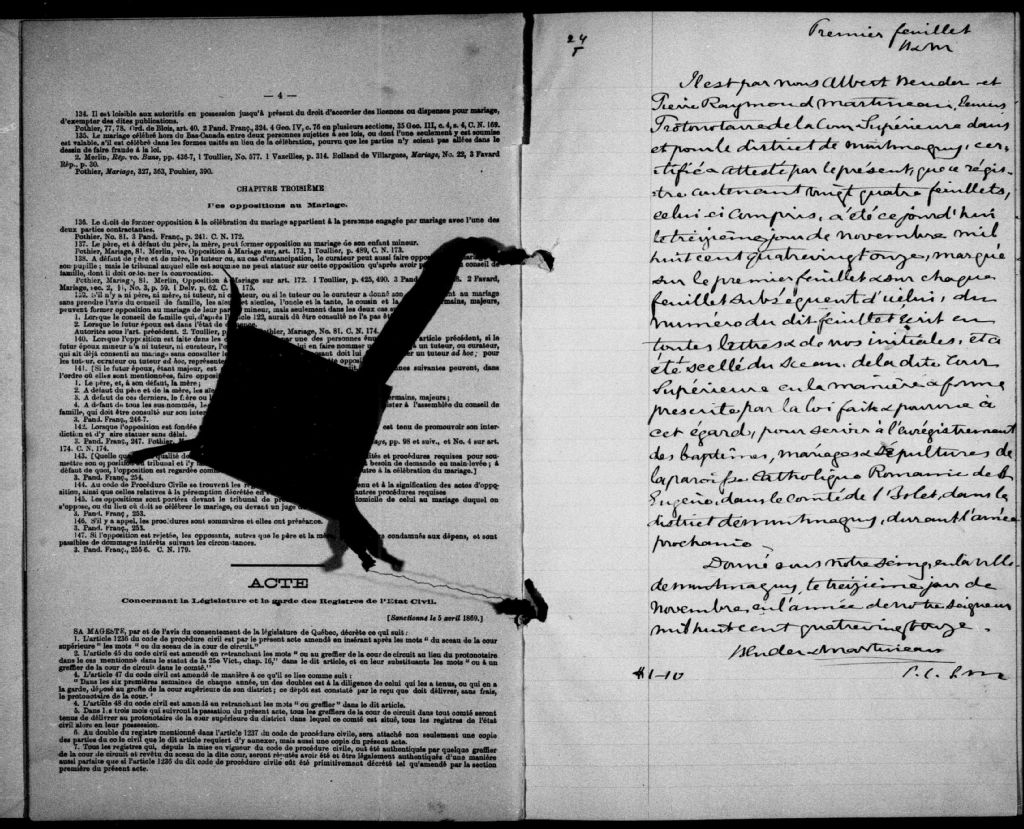 — 4 —
134. Il est loisible aux autorités en possession jusqu'à présent du droit d'accorder des licences ou dispenses pour mariage,
d'exempter des dites publications.
Pothier, 77, 78. Ord. de Blois, art. 40. 2 Pand. Franç., 324. 4 Geo. IV, c. 76 en plusieurs sections, 35 Geo. III, c. 4, s. 4, C. N. 169.
135. Le mariage célébré hors du Bas-Canada entre deux personnes sujettes à ses lois, ou dont l'une seulement y est soumise
est valable, s'il est célébré dans les formes usités au lieu de la célébration, pourvu que les parties n'y soient pas allées dans le
dessin de faire fraude à la loi.
2. Merlin, Rép. vo. Bans, pp. 435-7, 1 Toullier, No. 577. 1 Vazeilles, p. 314. Rolland de Villargues, Mariage, No. 22, 3 Favard
Rép., p. 30.
Pothier, Mariage, 327, 363, Pouhier, 390.
CHAPITRE TROISIÈME
Des oppositions au Mariage.
136. Le droit de former opposition à la célébration du mariage appartient à la personne engagée par mariage avec l'une des
deux parties contractantes.
Pothier, No. 81. 3 Pand. Franç., p. 241. C. N. 172.
137. Le père, et à défaut du père, la mère, peut former opposition au mariage de son enfant mineur.
Pothier, Mariage, 81. Merlin, vo. Opposition à Mariage, sur art. 173, 1 Toullier, p. 489, C. N. 173.
138. A défaut de père et de mère, le tuteur ou, au cas d'émancipation, le curateur peut aussi faire
son pupille; mais le tribunal auquel elle est soumise ne peut statuer sur cette opposition qu'après avoir conseil de
famille, dont il doit ordonner la convocation.
Pothier, Mariage, 81. Merlin, Opposition à Mariage sur art. 172. 1 Toullier, p. 425, 490. 3 Pand. 2 Favard,
139. S'il n'y a ni père, ni mère, ni tuteur, ni ou si le tuteur ou le curateur a donné au mariage
sans prendre l'avis du conseil de famille, les aieuls et aieules, l'oncle et la tante, le cousin et la majeurs,
peuvent former opposition au mariage de leur mineur, mais seulement dans les deux cas
1. Lorsque le conseil de famille qui, d'après 122, aurait dû être consulté ne l'a pas
2. Lorsque le futur époux est dans l'état de
Autorités sous l'art. précédent. 2. Toullier, Mariage, No. 81. C. N. 174.
140. Lorsque l'opposition est faite dans les une des personnes article précédent, si le
futur époux mineur n'a ni tuteur, ni curateur, lui en faire nommer un tuteur, ou curateur,
qui ait déjà consenti au mariage sans consulter le doit lui un tuteur ad hoc; pour
les tuteur, curateur ou tuteur ad hoc, représenter
141. [Si le futur époux, étant majeur, est suivantes peuvent, dans
l'ordre où elles sont mentionnées, faire
1. Le père, et, à son défaut, la mère;
2. A défaut du père et de la mère, les
3. A défaut de ces derniers, le frère ou germains, majeurs;
4. A défaut de tous les sus-nommés, à l'assemblée du conseil de
famille, qui doit être consulté sur son
3. Pand. Franç., 246-7.
142. Lorsque l'opposition est fondée est tenu de promouvoir son inter-
diction et d'y faire statuer sans délai.
3. Pand. Franç., 247. Pothier, pp. 98 et suiv., et No. 4 sur art.
174. C. N. 174.
143. [Quelle que soit la qualité de et procédures requises pour sou-
mettre son opposition au tribunal et l'y besoin de demande en main-levée; à
défaut de quoi, l'opposition est regardée à la célébration du mariage.]
3. Pand. Franç., 254.
144. Au Code de Procédure Civile se trouvent les et à la signification des actes d'oppo-
sition, ainsi que celles relatives à la péremption décrétée en autres procédures requises
145. Les oppositions sont portées devant le tribunal de domicile de celui au mariage duquel on
s'oppose, ou du lieu où doit se célébrer le mariage, ou devant un juge
3. Pand. Franç., 253.
146. S'il y a appel, les procédures sont sommaires et elles ont préséance.
3. Pand. Franç., 253.
147. Si l'opposition est rejetée, les opposants, autres que le père et la condamnés aux dépens, et sont
passibles de dommages intérêts suivant les circonstances.
3. Pand. Franç., 255-6. C. N. 179.
ACTE
Concernant la Législature et la garde des Registres de l'Etat Civil.
[Sanctionné le 5 avril 1869.]
SA MAGESTÉ, par et de l'avis du consentement de la législature de Québec, décrète ce qui suit:
1. L'article 1236 du code de procédure civil est par le présent acte amendé en insérant après les mots "du sceau de la cour
supérieure" les mots "ou du sceau de la cour de circuit."
2. L'article 45 du code civil est amendé en retranchant les mots "ou au greffier de la cour de circuit au lieu du protonotaire
dans le cas mentionné dans le statut de la 25e Vict., chap. 16," dans le dit article, et en leur substituants les mots "ou à un
greffier de la cour de circuit dans le comté."
4. L'article 47 du code civil est amendé de manière à ce qu'il se lise comme suit:
"Dans les six premières semaines de chaque année, un des doubles est à la diligence de celui qui les a tenus, ou qui en a
la garde, déposé au greffe de la cour supérieure de son district; ce dépôt est constaté par le reçu que doit délivrer, sans frais,
le protonotaire de la cour."
4. L'article 48 du code civil est amendé en retranchant les mots "ou greffier" dans le dit article.
5. Dans les trois mois qui suivront la passation du présent acte, tous les greffiers de la cour de circuit dans tout comté seront
tenus de délivrer au protonotaire de la cour supérieure du district dans lequel ce comté est situé, tous les registres de l'état
civil alors en leur possession.
6. Au double du registre mentionné dans l'article 1237 du code de procédure civile, sera attaché non seulement une copie
des parties du code civil que le dit article requiert d'y annexer, mais aussi une copie du présent acte.
7. Tous les registres qui, depuis la mise en vigueur du code de procédure civile, ont été authentiqués par quelque greffier
de la cour de circuit et revêtu du sceau de la dite cour, seront réputés avoir été et être légalement authentiqués d'une manière
aussi parfaite que si l'article 1236 du dit code de procédure civile eût été primitivement décrété tel qu'amendé par la section
première du présent acte.
24
Premier feuillet
B&M
Il est par nous Albert Bender et
Pierre Raymond Martineau,
Protonotaire de la Cour Supérieure dans
et pour le district de Montmagny, cer-
tifié & attesté par le présent, que ce régis-
tre contenant vingt quatre feuillets,
celui-ci compris, a été ce jourd'hui
le treizième jour de novembre mil
huit cent quatrevingt onze, marqué
sur le premier feuillet & sur chaque
feuillet subséquent d'icelui, du
numéro du dit feuillet écrit en
toutes lettres & de nos initiales, et a
été scellé du sceau de la dite Cour
Supérieure en la manière & forme
prescrite par la loi faite & pourvue à
cet égard, pour servir à l'enrégistrement
des baptêmes, mariages & Sépultures de
la paroisse Catholique Romaine de St
Eugène, dans le Comté de l'Islet, dans le
district de Montmagny, durant l'année
prochaine.
Donné sous notre Seing, en la ville
de Montmagny, le treizième jour de
novembre, en l'année de notre Seigneur
mil huit cent quatrevingt onze.
Bender & Martineau
$1-10